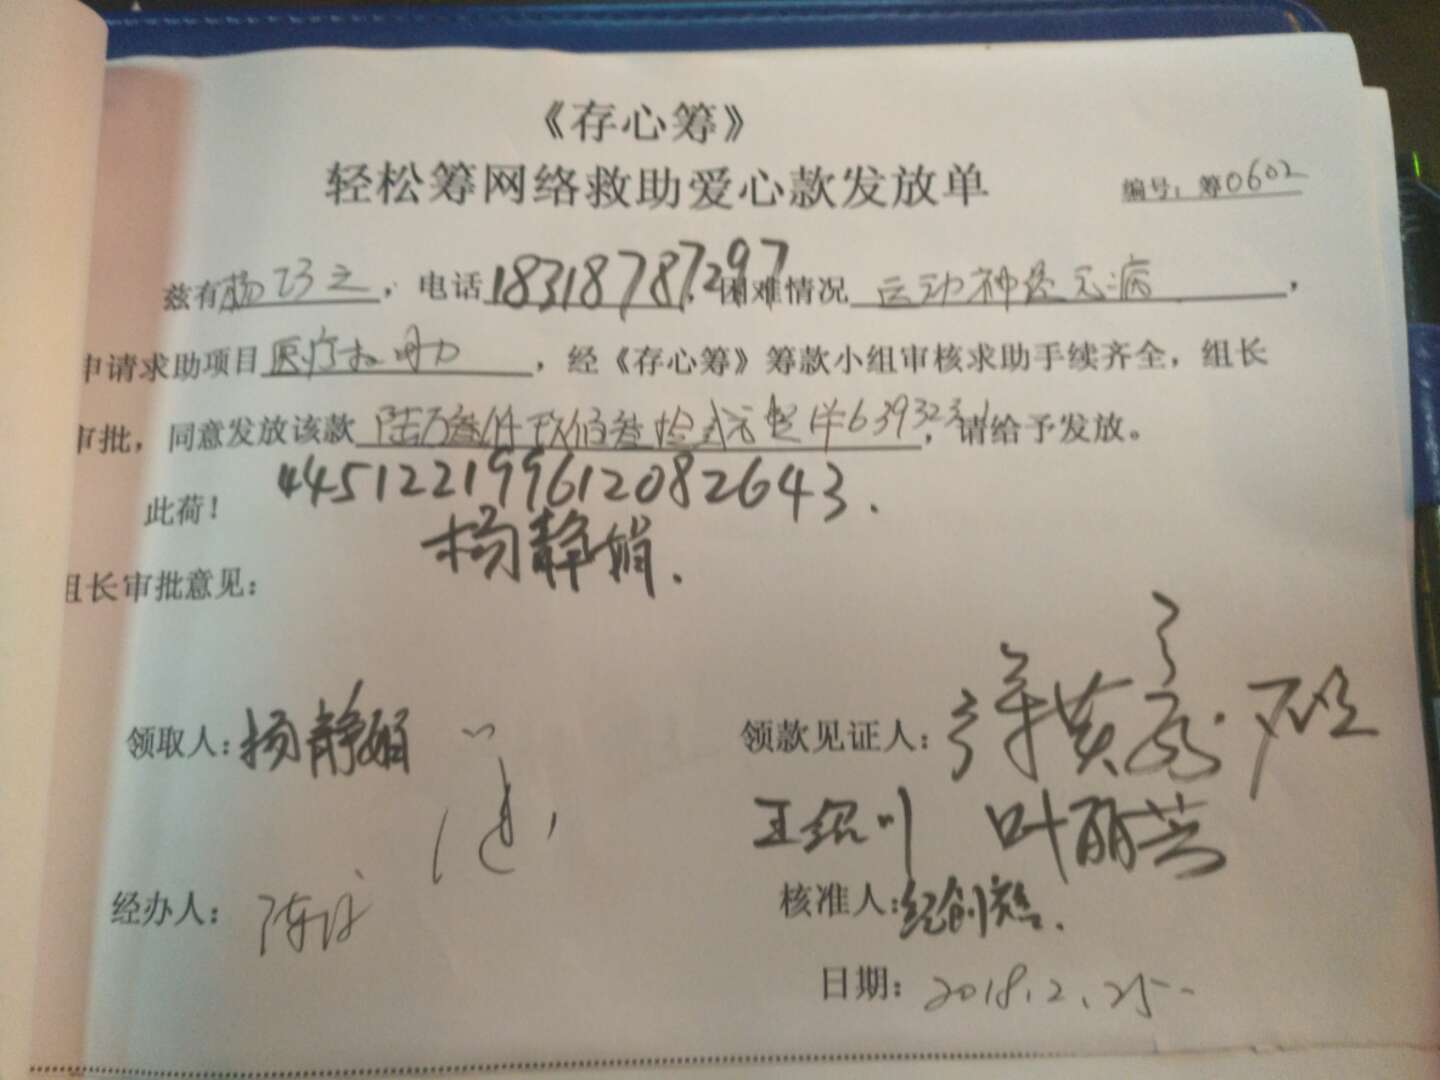 《存心筹》
轻松筹网络救助爱心款发放单
编号：筹0602
兹有杨巧之，电话18318787297困难情况运动神经元病，
申请求助项目医疗救助，经《存心筹》筹款小组审核求助手续齐全，组长
审批，同意发放该款陆万叁仟玖佰叁拾贰元整，请给予发放。
445122199612082643.
此荷！
杨静娟.
组长审批意见：
领取人：杨静娟
领款见证人：
王绍川 叶丽芸
经办人：陈
核准人：
日期：2018.2.25